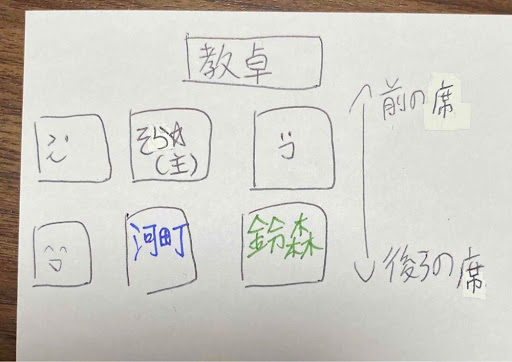 教卓
前の席
そら☆
(主)
河町
鈴森
後ろの席